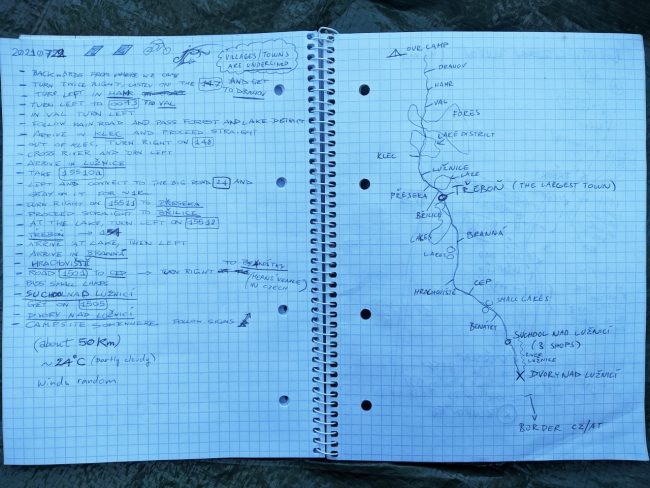 VILLAGES/TOWNS
ARE UNDERLINED
- BACKWARDS FROM WHERE WE CAME
- TURN TWICE RIGHT, LATER ON THE 147 AND GET
TO DRAHOV
- TURN LEFT IN HAMR
- TURN LEFT TO VAL
- IN VAL TURN LEFT
- FOLLOW MAIN ROAD AND PASS FOREST AND LAKE DISTRICT
- ARRIVE IN KLEC AND PROCEED STRAIGHT
- OUT OF KLEC, TURN RIGHT ON 148
- CROSS RIVER AND TURN LEFT
- ARRIVE IN LUŽNICE
- TAKE 155101
- LEFT AND CONNECT TO THE BIG ROAD 24 AND
STAY ON IT FOR
- TURN RIGHT ON 15521 TO PŘESEKA
- PROCEED STRAIGHT TO BŘILICE
- AT THE LAKE, TURN LEFT ON
- TŘEBOŇ → 154
- ARRIVE AT LAKE, THEN LEFT
- ARRIVE IN BRANNÁ
- HRACHOVIŠTĚ
- ROAD 1501 TO CEP → TURN RIGHT
TO BENÁTKY
(MEANS VENICE
IN CZECH)
- PASS SMALL LAKES
- SUCHDOL NAD LUŽNICÍ
- GET ON 1505
- DVORY NAD LUŽNICÍ
- CAMPSITE SOMEWHERE FOLLOW SIGNS
(about 50 Km)
~ 24°C (partly cloudy)
Winds random
OUR CAMP
DRAHOV
HAMR
VAL
FORES
LAKE DISTRICT
KLEC
LUŽNICE
LAKE
PŘESEKA
TŘEBOŇ (THE LARGEST TOWN)
BŘILICE
LAKES
BRANNÁ
LAKES
CEP
HRACHOVIŠTĚ
SMALL LAKES
BENATKY
SUCHDOL NAD LUŽNICÍ
(3 SHOPS)
RIVER
LUŽNICE
DVORY NAD LUŽNICÍ
BORDER CZ/AT